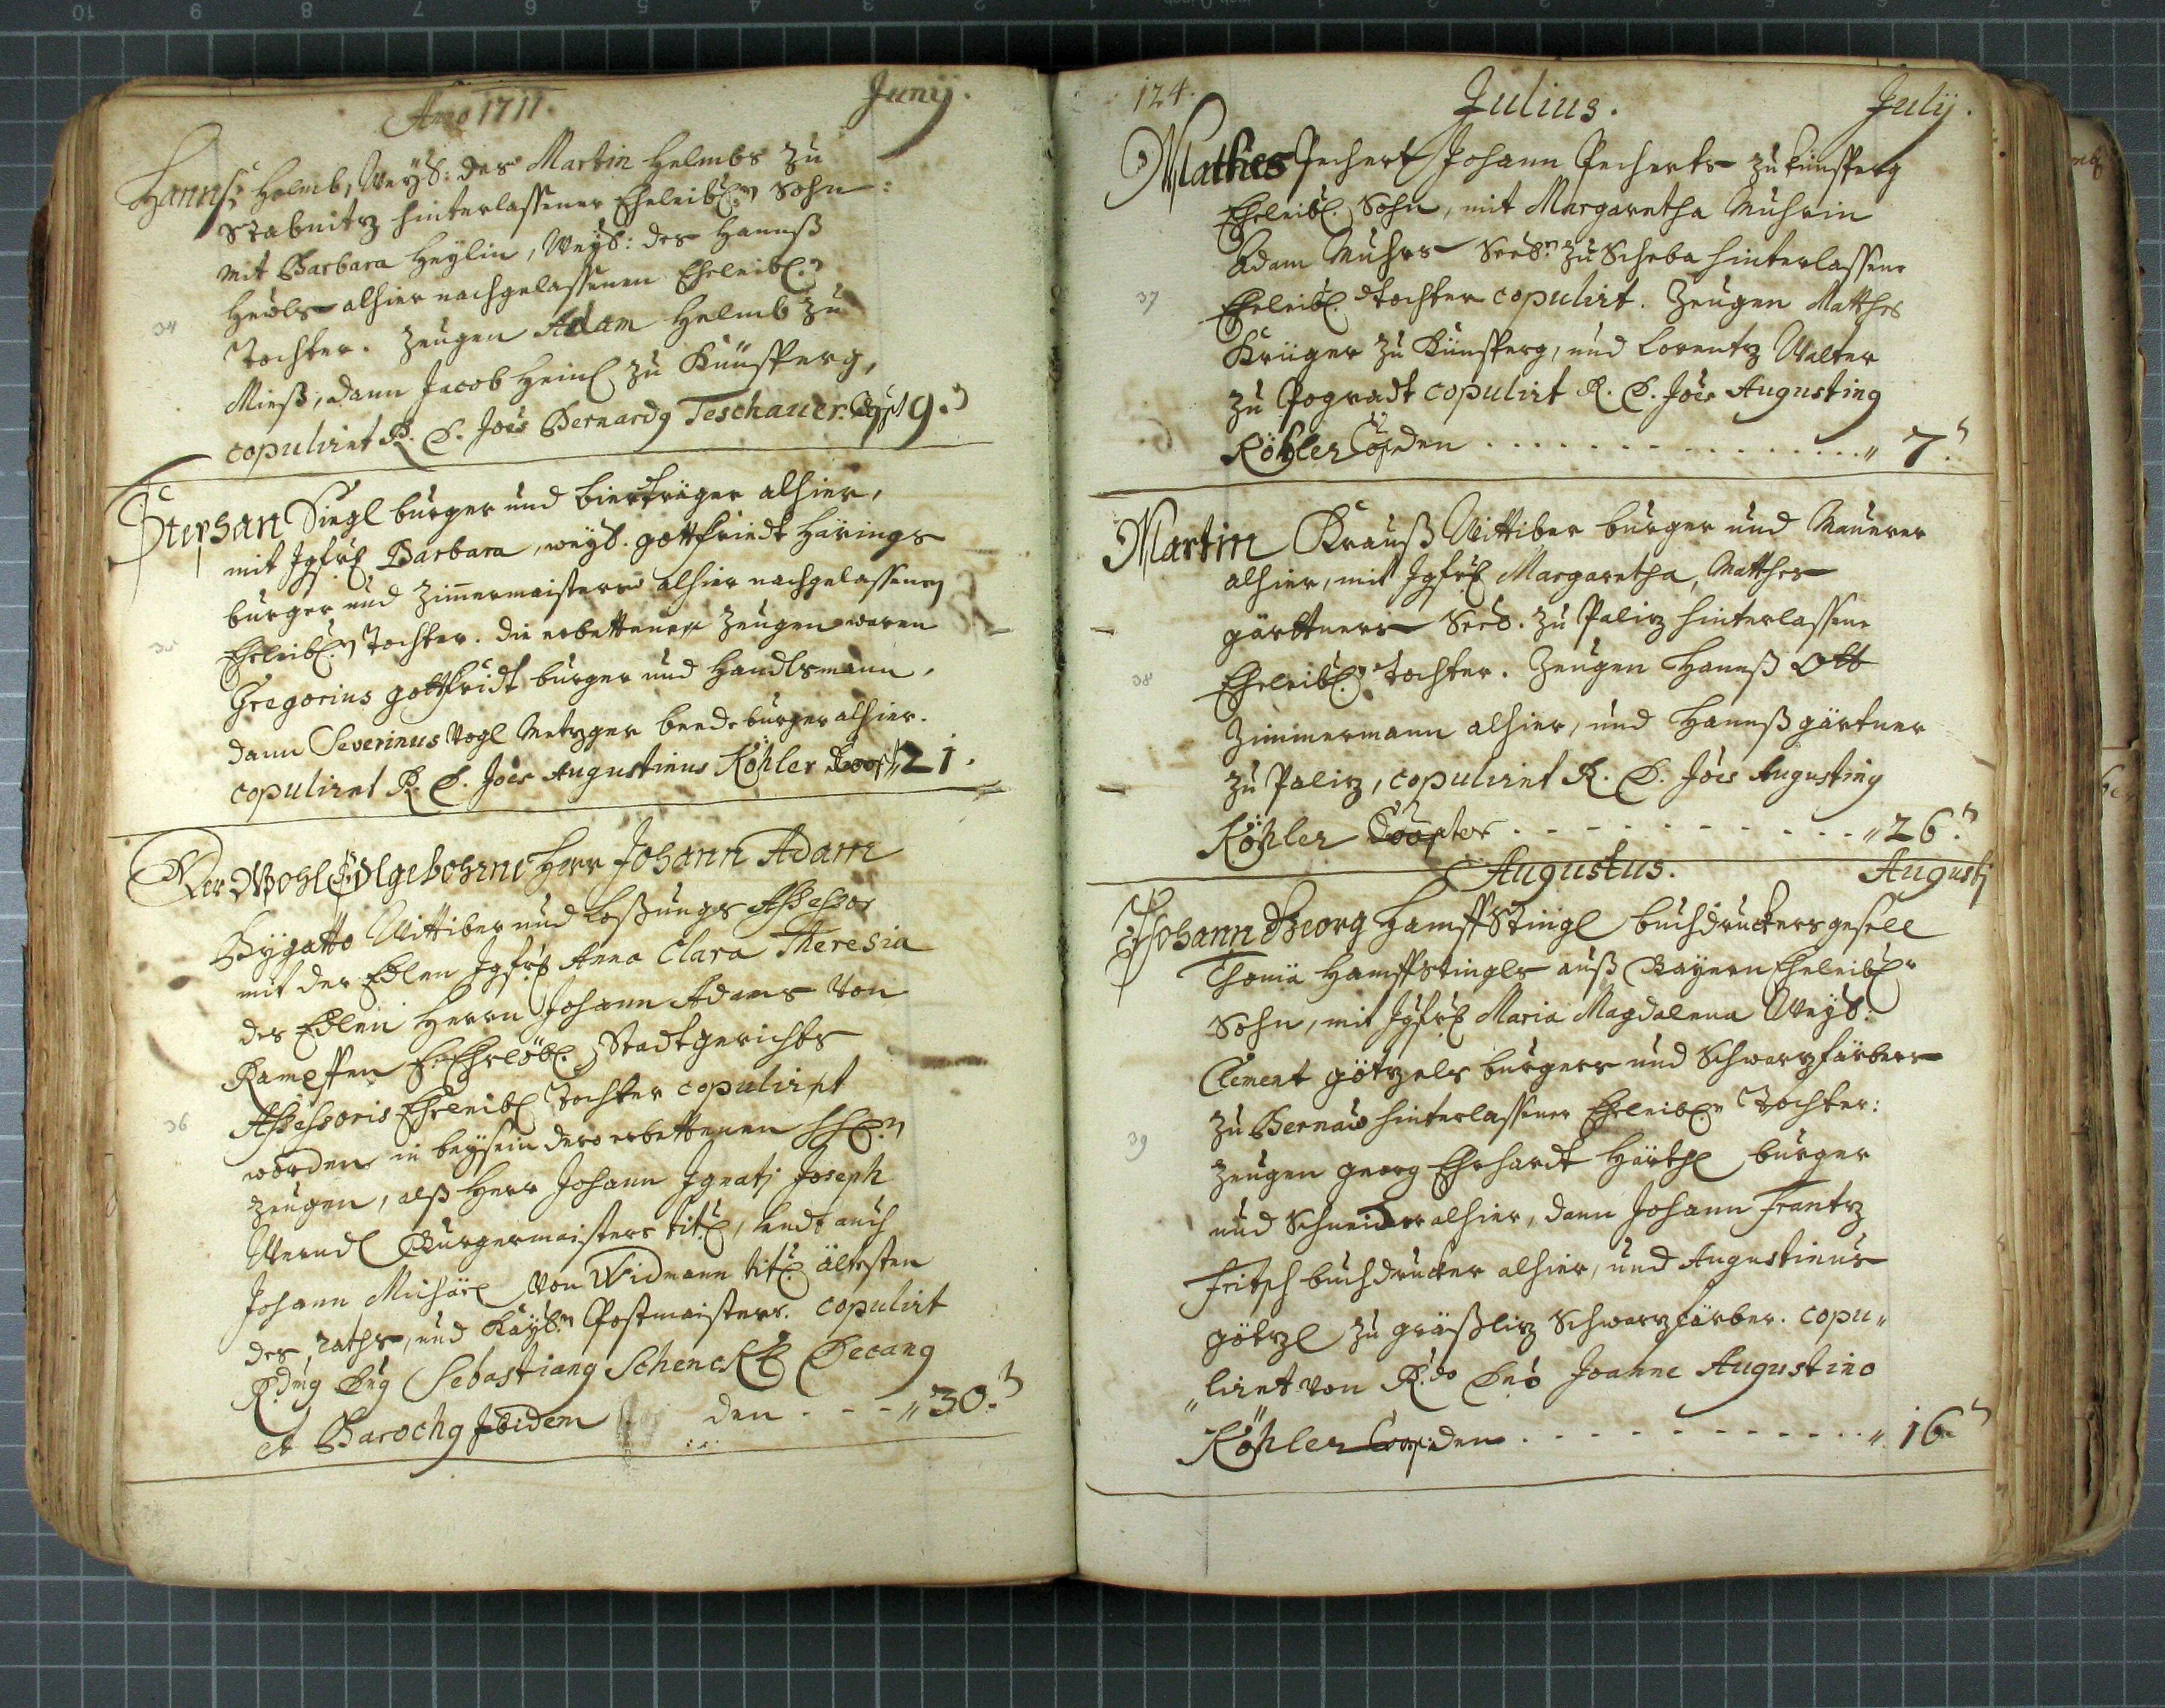 Anno 1711. Junij.
Hannß Helmb, Weyl: des Martin Helmbs zu
Stabnitz hinterlassener Eheleibl. Sohn:
mit Barbara Heylin, Weyl: des Hannß
Heyls alhier nachgelassenen Eheleibl.
34
Tochter. Zeugen Adam Helmb zu
Mieß, dann Jacob Heinl zu Künsperg,
copuliret R. D. Joës Bernardg Teschauer. 9.
Stephan Siegl burger und bierträger alhier,
mit Jgfr. Barbara, weyl. Gottfriedt Härings
burger und Zimmermaisters alhier nachgelassenen
35
Eheleibl. Tochter. die erbettenen Zeugen waren
Gregorius Gottfridt burger und Handlsmann,
dann Severinus Vogl Metzger beede burger alhier.
copuliret R. D. Joës Augustinus Köhler Coop. 21.
Der WohlEdlgebohrne Herr Johann Adam
Bÿgatto Wittiber und Loßungs Assessor
mit der Edlen Jgfr. Anna Clara Theresia
des Edlen Herrn Johann Adams Von
Rampffen Ehrlöbl. Stadtgerichts
36
Assessoris Eheleibl Tochter copuliret
worden in beÿsein dero erbettenen
Zeugen, alß Herr Johann Ignatj Joseph
Werndl Burgermaisters tit, undt auch
Johann Michäel Von Widmann tit. ältesten
des raths, und Kaÿl. Postmaisters. copulirt
R.dmg Dng Sebastiang Schenckl Decang
et Parochg Ibidem den - - - 30.
124. Julius. Julij.
Mathes Pechert Johann Pecherts zu künsperg
Eheleibl. Sohn, mit Margaretha Muhrin
Adam Muhrs Seel. zu Scheba hinterlassene
37
Eheleibl. Tochter copulirt. Zeugen Matthes
Krüger zu Künsperg, und Lorentz Walter
zu Pogradt copulirt R. D. Joës Augusting
Köhler Coop den . . . . . . . . . . . . . . . 7.
Martin Krauß Wittiber burger und Maurer
alhier, mit Jgfr. Margaretha, Matthes
gärttners Seel. zu Palitz hinterlassene
38
Eheleibl. Tochter. Zeugen Hannß Ott
Zimmermann alhier, und Hannß gärtner
zu Palitz, copuliret R. D. Joës Augusting
Köhler Cooptor . - - - - - - - - - 26.
Augustus. Augustj
Johann Georg HampfStingl buchdruckersgesell
Thomä Hampfstingls auß Baÿern Eheleibl.
Sohn, mit Jgfr. Maria Magdalena Weyl:
Clement götzels burgers und Schwarzfärbers
zu Bernau hinterlassener Eheleibl. Tochter:
39
Zeugen Georg Ehrhardt Härtl burger
und Schneider alhier, dann Johann Frantz
Fritsch buchdrucker alhier, und Augustinus
götzl zu gräßlitz Schwarzfärber. copu„
„liret von R.do Dnō Joanne Augustino
Köhler Coop: den . - - - - - - - - - 16.